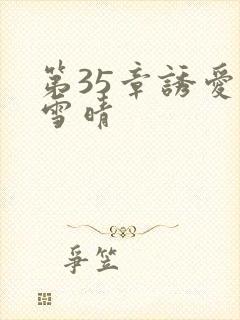 第35章誘愛
雪晴
爭笠